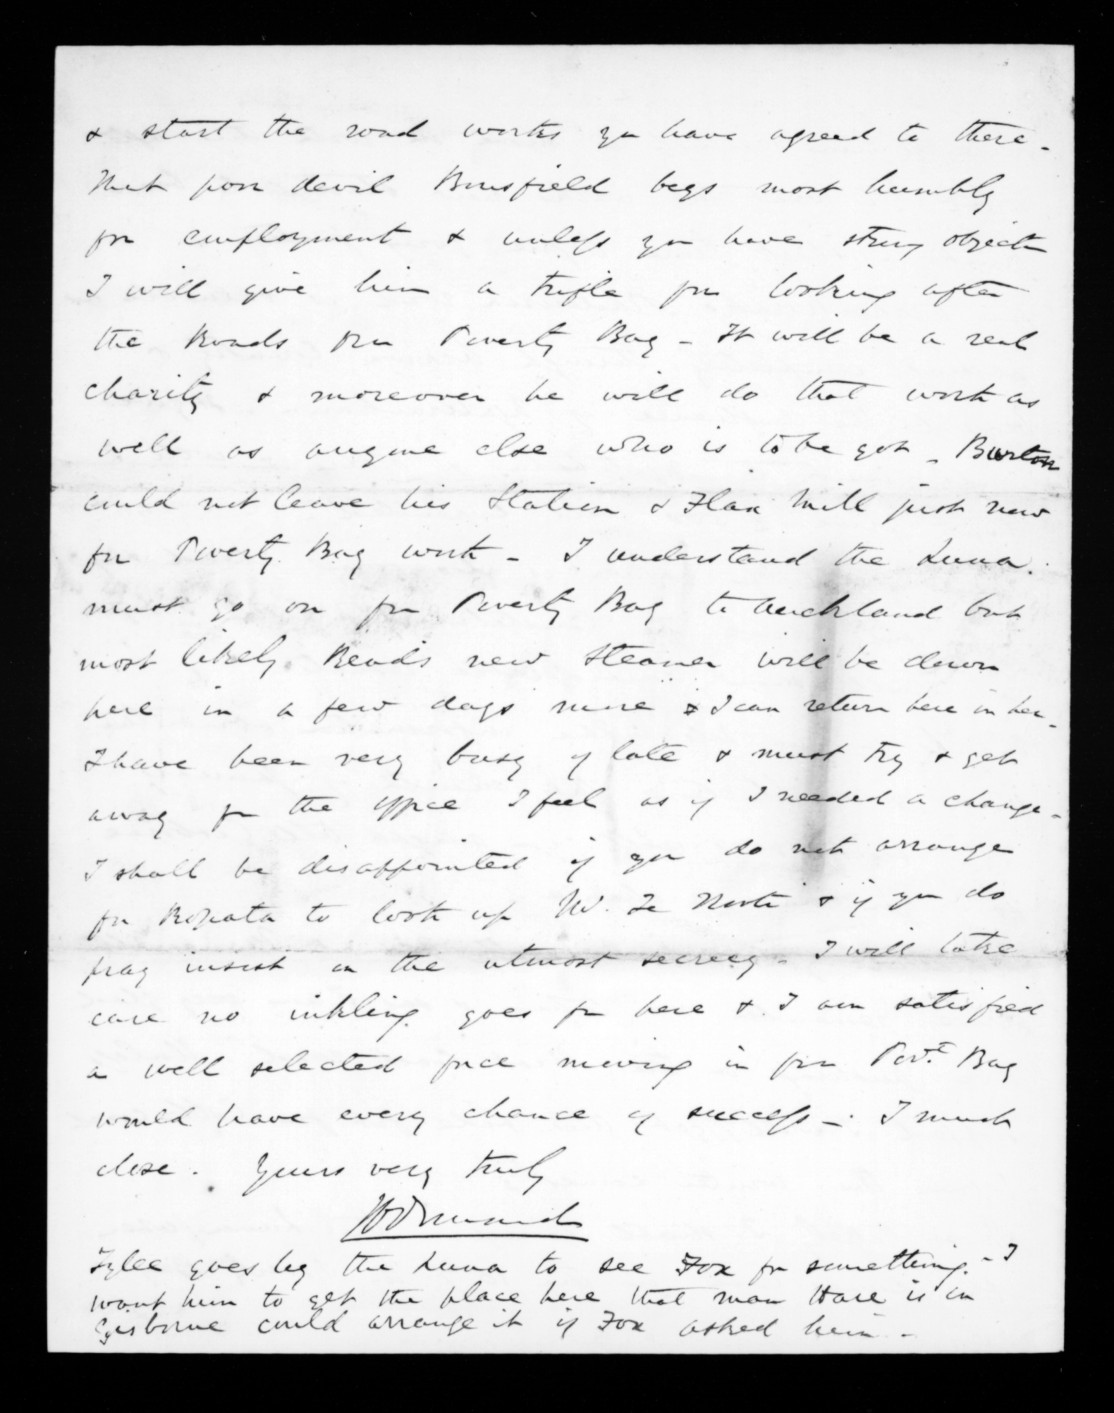 & start the road works you have agreed to there -
that poor devil Bousfield begs most humbly
for employment & unless you have strong objectn
I will give him a trifle for looking after
the Roads from Poverty Bay - It will be a real
charity & moreover he will do that work as
well as anyone else who is to be got - Burton
could not leave his Station & Flax Mill just now
for Poverty Bay work - I understand the Luna
must go on from Poverty Bay to Auckland but
most likely Reads new Steamer will be down
here in a few days more & I can return here in her -
I have been very busy of late & must try & get
away from the office I feel as if I needed a change -
I shall be disappointed if you do not arrange
for Ropata to look up W. Te Kooti & if you do
pray insist on the utmost secrecy - I will take
care no inkling goes from here & I am satisfied
a well selected force moving in from Povt. Bay
would have every chance of success - I must
close. Yours very truly
JD Ormond
Tylee goes by the Luna to see Fox for something - I
want him to get the place here that man Hare is in
Gisborne could arrange it if Fox asked him -